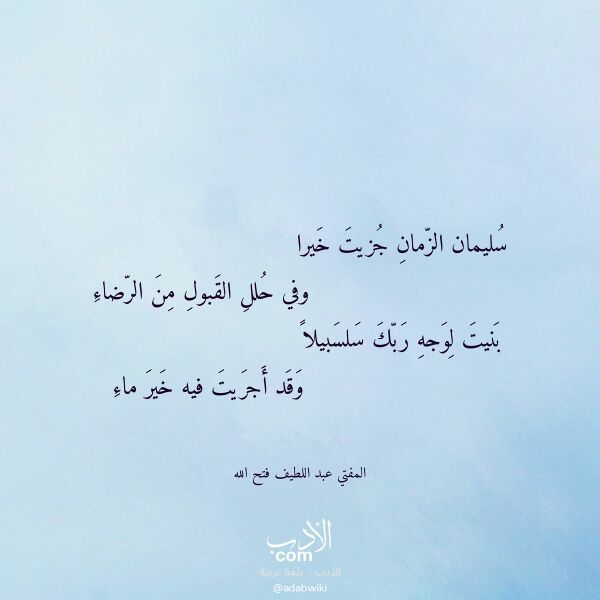 سُليمان الزّمانِ جُزيتَ خَيرا
وفي حُللِ القَبولِ مِنَ الرّضاءِ
بَنيتَ لِوَجهِ رَبّكَ سَلسَبيلاً
وَقَد أَجرَيتَ فيه خَيرَ ماءِ
المفتي عبد اللطيف فتح الله
الأدب
com
الأدب .. بلغة عربية
@adabwiki